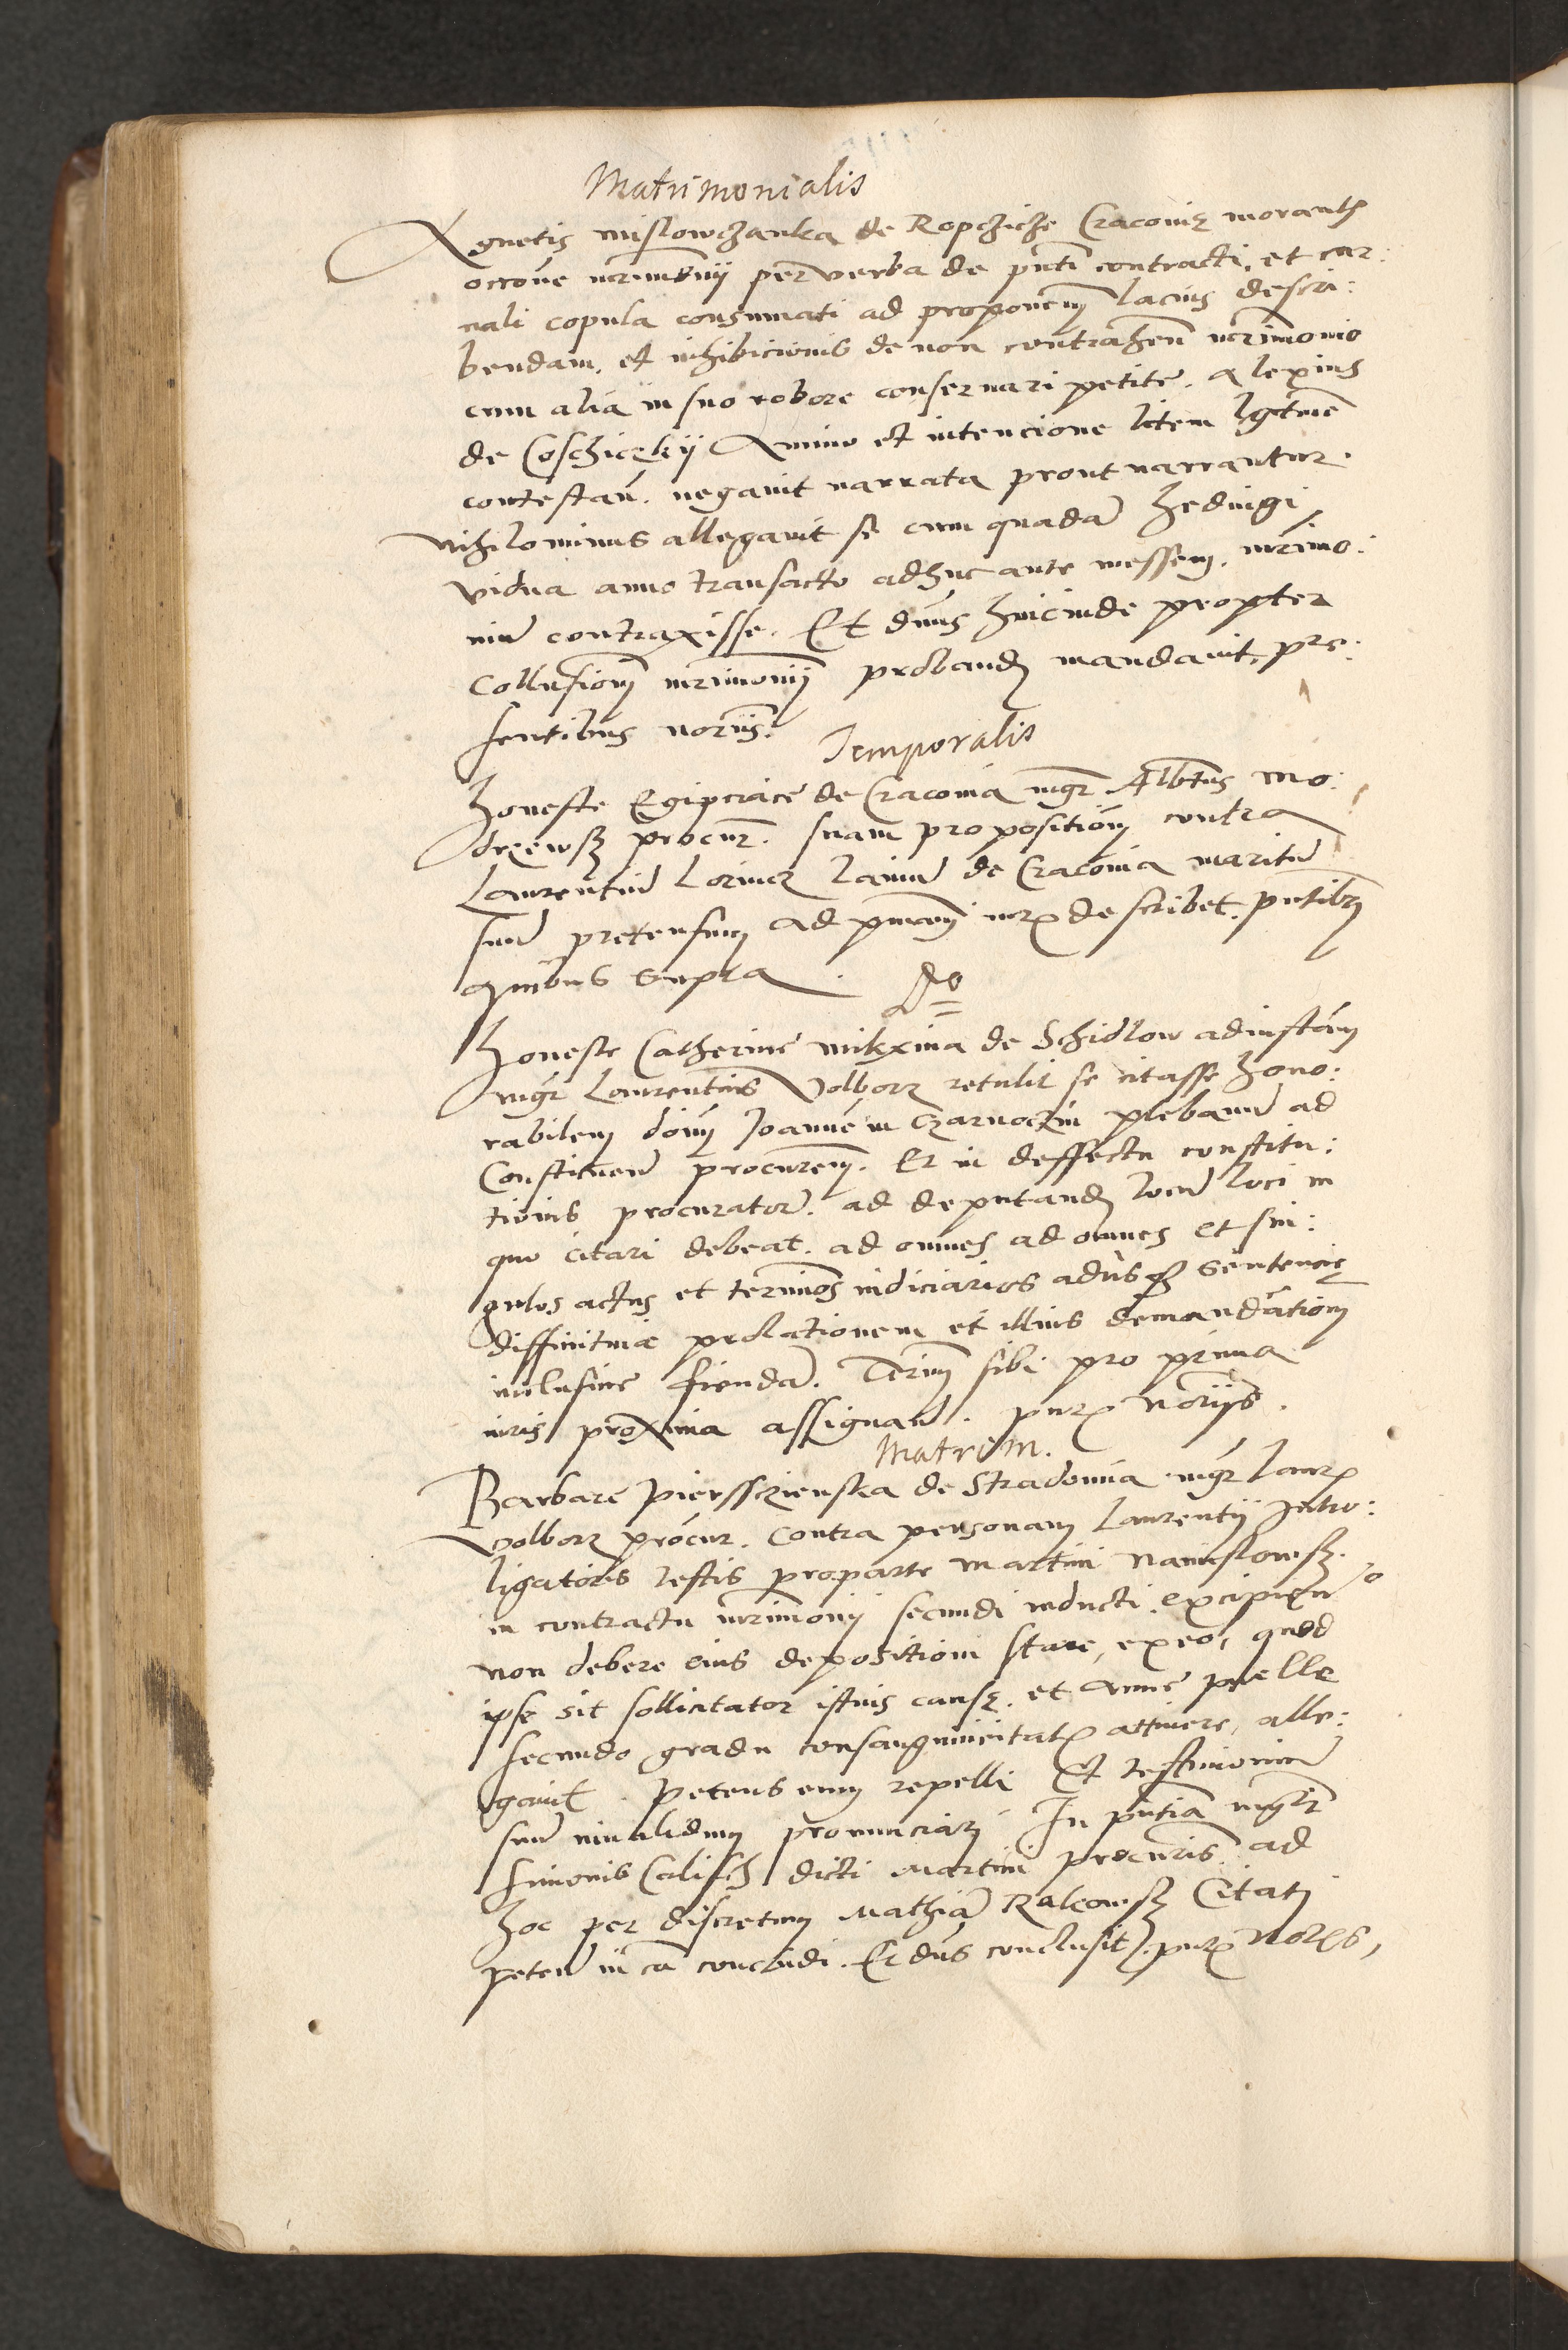 Matrimonialis
Agnetis mislowczanka de Ropczicze Cracovię morantis
occone mrimonij per verba de pnti contracti, et car:
nali copula consumati ad proponem lacius descri:
bendam, et inhibicionis de non contrahen mrimonio
cum alia in suo robore conservari petite. Alexius
de Coschiczkij Animo et intencione litem lgtme
contestan. negavit narrata prout narrantur.
Nihilominus allegavit se cum quadam Hedvigi
vidua anno transacto adhuc ante messem, mrimo:
niu contraxisse. Et dnus huicinde propter
collusionem mrimonij probandum mandavit, pre:
sentibus notrijs.
Temporalis
Honeste Egipciace de Cracovia mgr Albtus mo:
drzewsky procur. suam propositionem contra
Laurentiu Lorincz laniu de Cracovia maritu
suu pretensum ad primam iuris describet, pntibus
quibus supra.
Honeste Catherine mikxina de Schidlow ad instam
mgri Laurentius Volborz retulit se citasse hono:
rabilem domin Joannem in Czarnoczin plebanu ad
Constituendu procurem. Et in deffectu constitu:
tionis procurator. ad deputandum locu loci in
quo citari debeat. ad omnes ad omnes et sin:
gulos actus et terminos iudiciarios adusque sentencię
diffinitivae prolationem et illius demandationem
inclusive fienda. Terim sibi pro prima
iuris proxima assignan. pntibus notrijs.
Matrim.
Barbare Pierssczienska de Stradomia mgr Laur
volborz procur. contra personam Laurentij Intro:
ligatoris testis pro parte martini Namislowsky.
in contractu mrimonij secundi inducti, excipien
non debere eius depositioni stare, ex eo, quod
ipse sit sollicitator istius causę. et Anne puelle
secundo gradu consanguinitatis attinere, alle:
gavit. petens eum repelli Et testimoniu
suu invalidum pronunciari In pntia mgri
Simonis Calisch dicti Martini procuris. ad
hoc per discretum Mathia Rakowsky Citati
peten in ca concludi. Et dnus conclusit, pntibus notrijs,